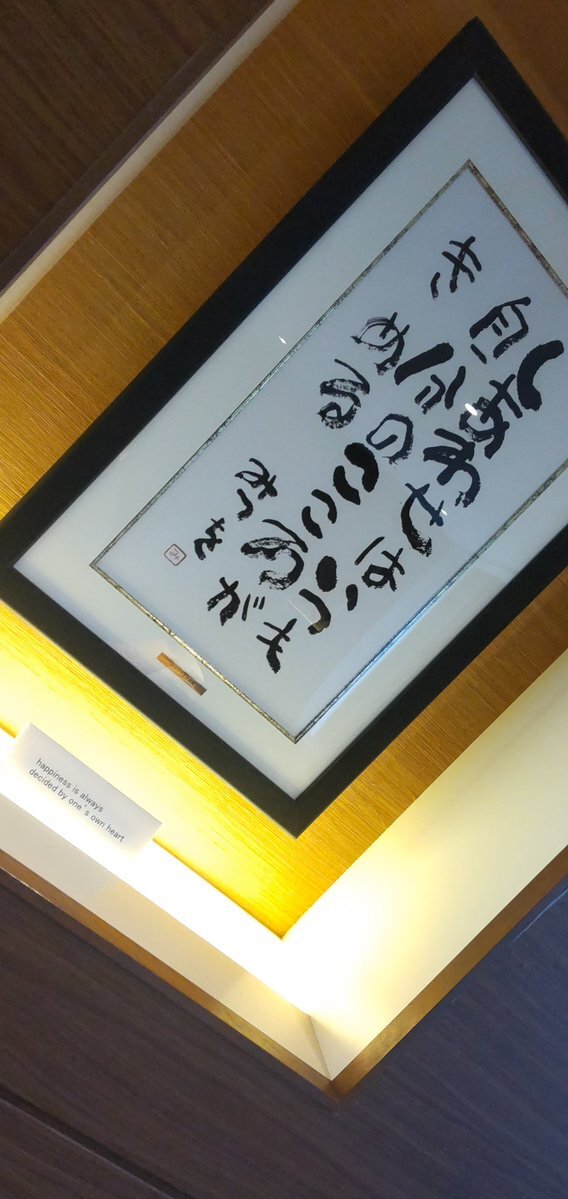 しあわせはいつも
自分のこころが
きめる
みつを
happiness is always
decided by one's own heart